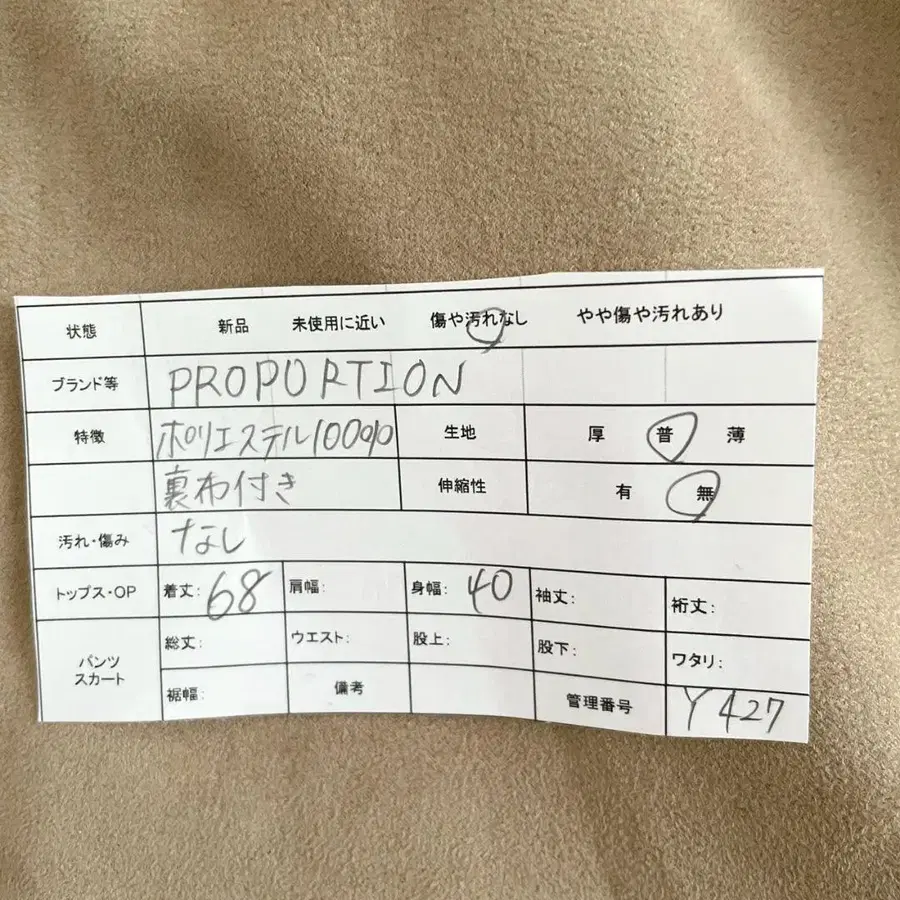 状態 新品 未使用に近い 傷や汚れなし やや傷や汚れあり
ブランド等 PROPORTION
特徴 ポリエステル100% 生地 厚 普 薄
裏布付き 伸縮性 有 無
汚れ・傷み なし
トップス・OP 着丈: 68 肩幅: 身幅: 40 袖丈: 裄丈:
パンツ スカート 総丈: ウエスト: 股上: 股下: ワタリ:
裾幅: 備考 管理番号 Y427